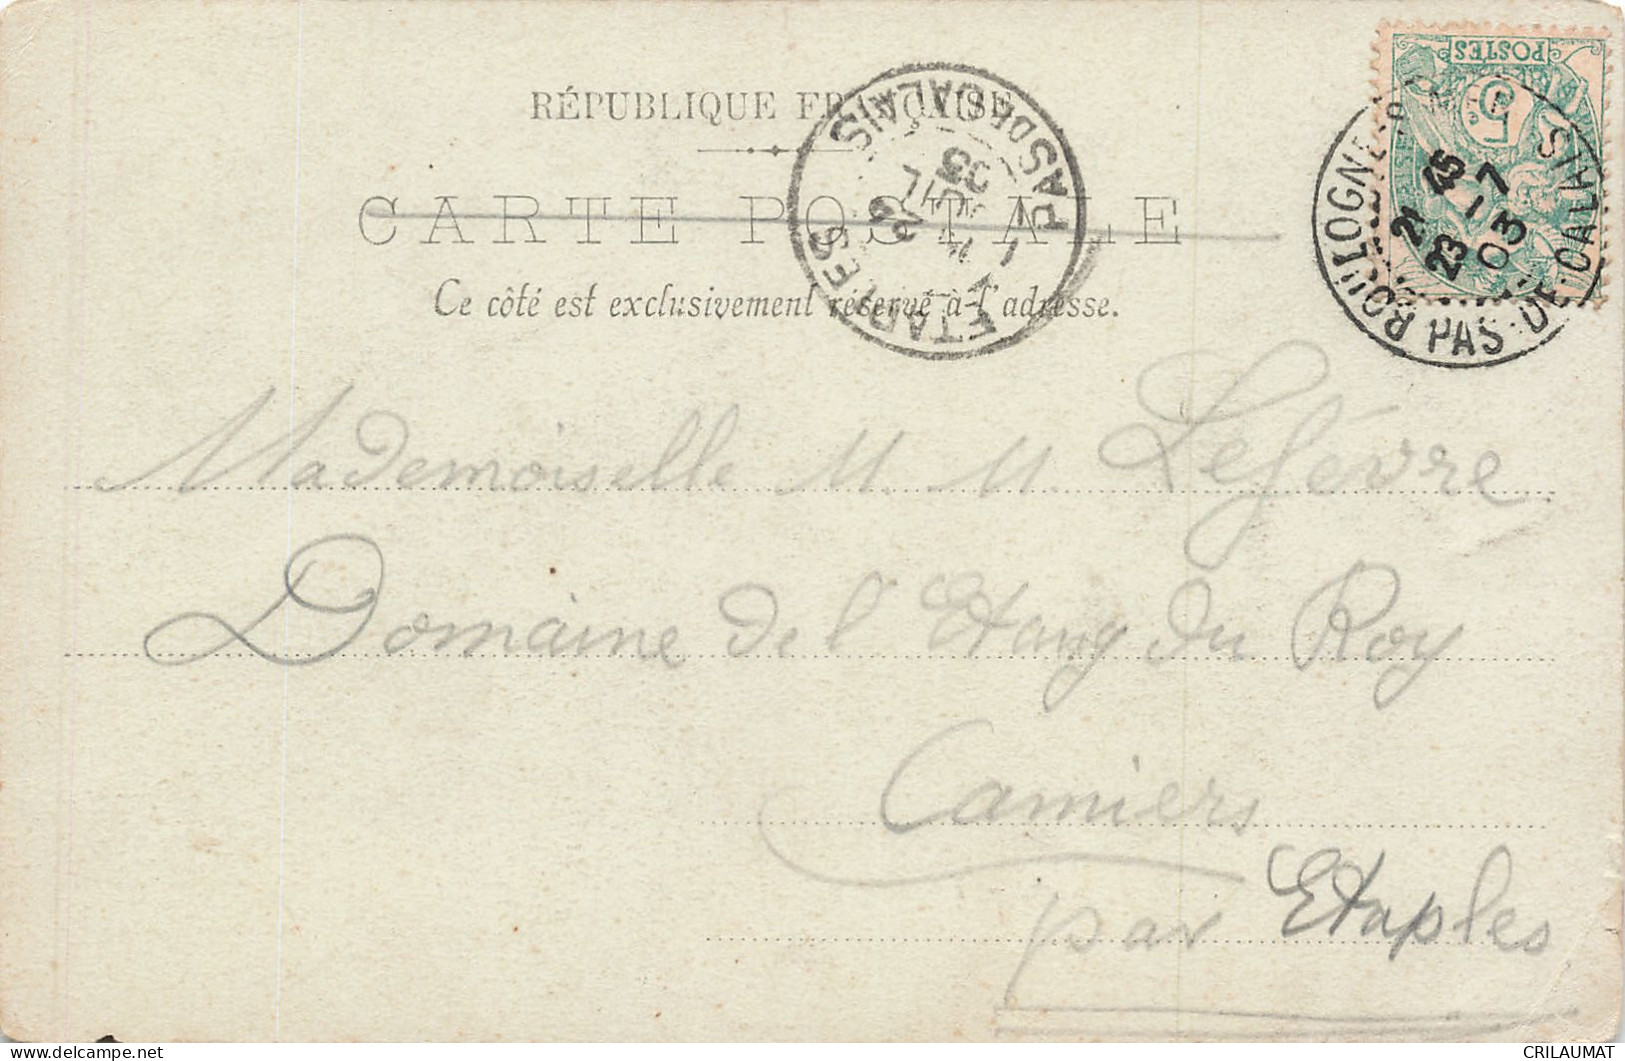 POSTES
5
RÉPUBLIQUE FRANÇAISE
CARTE POSTALE
Ce côté est exclusivement réservé à l'adresse.
ETAPLES
PAS DE CALAIS
BOULOGNE-S-MER
21 45
23 - 7
03
PAS-DE-CALAIS
Mademoiselle M. M. Lefèvre
Domaine de l'Etang du Roy
Camiers
par Etaples
CRILAUMAT